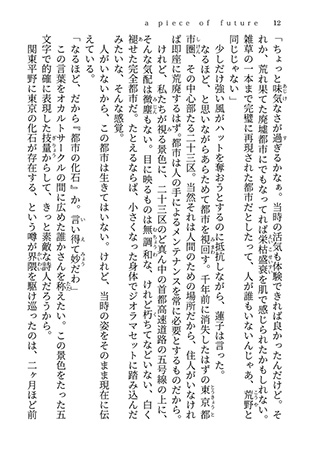 a piece of future 12
「ちょっと味気なさが過ぎるかなぁ。当時の活気も体験できれば良かったんだけど。そ
れか、荒れ果てた廃墟都市にでもなってれば栄枯盛衰を肌で感じられたかもしれない。
雑草の一本まで完璧に再現された都市だとしたって、人が誰もいないんじゃあ、荒野と
同じじゃない」
少しだけ強い風がハットを奪おうとするのに抵抗しながら、蓮子は言った。
なるほど、と思いながらあらためて都市を視回す。千年前に消失したはずの東京都
市圏、その中心部たる二十三区。当然それは人間のための場所だから、住人がいなけれ
ば即座に荒廃するはず。都市は人の手によるメンテナンスを常に必要とするものだから。
けれど、私たちが視る景色に、二十三区のど真ん中の首都高速道路の五号線の上に、
そんな気配は微塵もない。目に映るものは無調和な、けれど朽ちてなどいない、白く
褪せた完全都市だ。たとえるならば、小さくなった身体でジオラマセットに踏み込んだ
みたいな、そんな感覚。
人がいないから、この都市は生きてはいない。けれど、当時の姿をそのまま現在に伝
えている。
「なるほど、だから『都市の化石』か。言い得て妙だわ」
この言葉をオカルトサークルの間に広めた誰かさんを称えたい。この景色をたった五
文字で的確に表現した技量からして、きっと素敵な詩人だろうから。
関東平野に東京の化石が存在する、という噂が界隈を駆け巡ったのは、二ヶ月ほど前